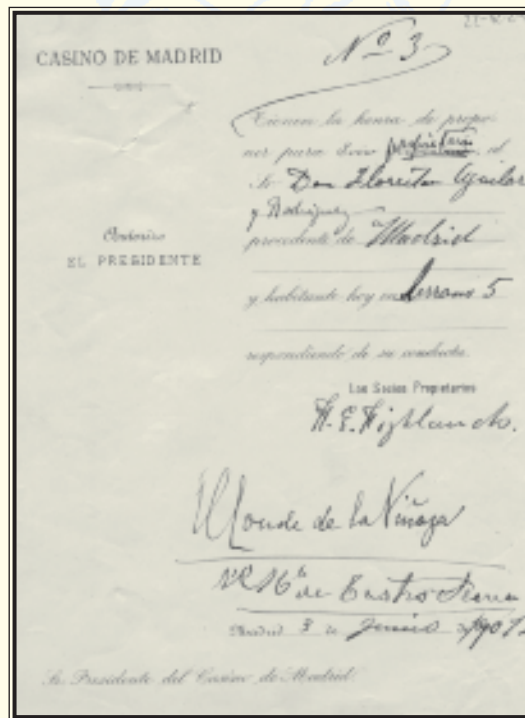 CASINO DE MADRID
Nº 3
Tienen la honra de propo-
ner para Socio propietario al
Sr. Don Florestán Aguilar
y Rodríguez
procedente de Madrid
y habitante hoy en Serrano 5
respondiendo de su conducta.
Autorizo
EL PRESIDENTE
Los Socios Propietarios
El Conde de la Viñaza
Madrid 3 de Junio de 1901
Sr. Presidente del Casino de Madrid.